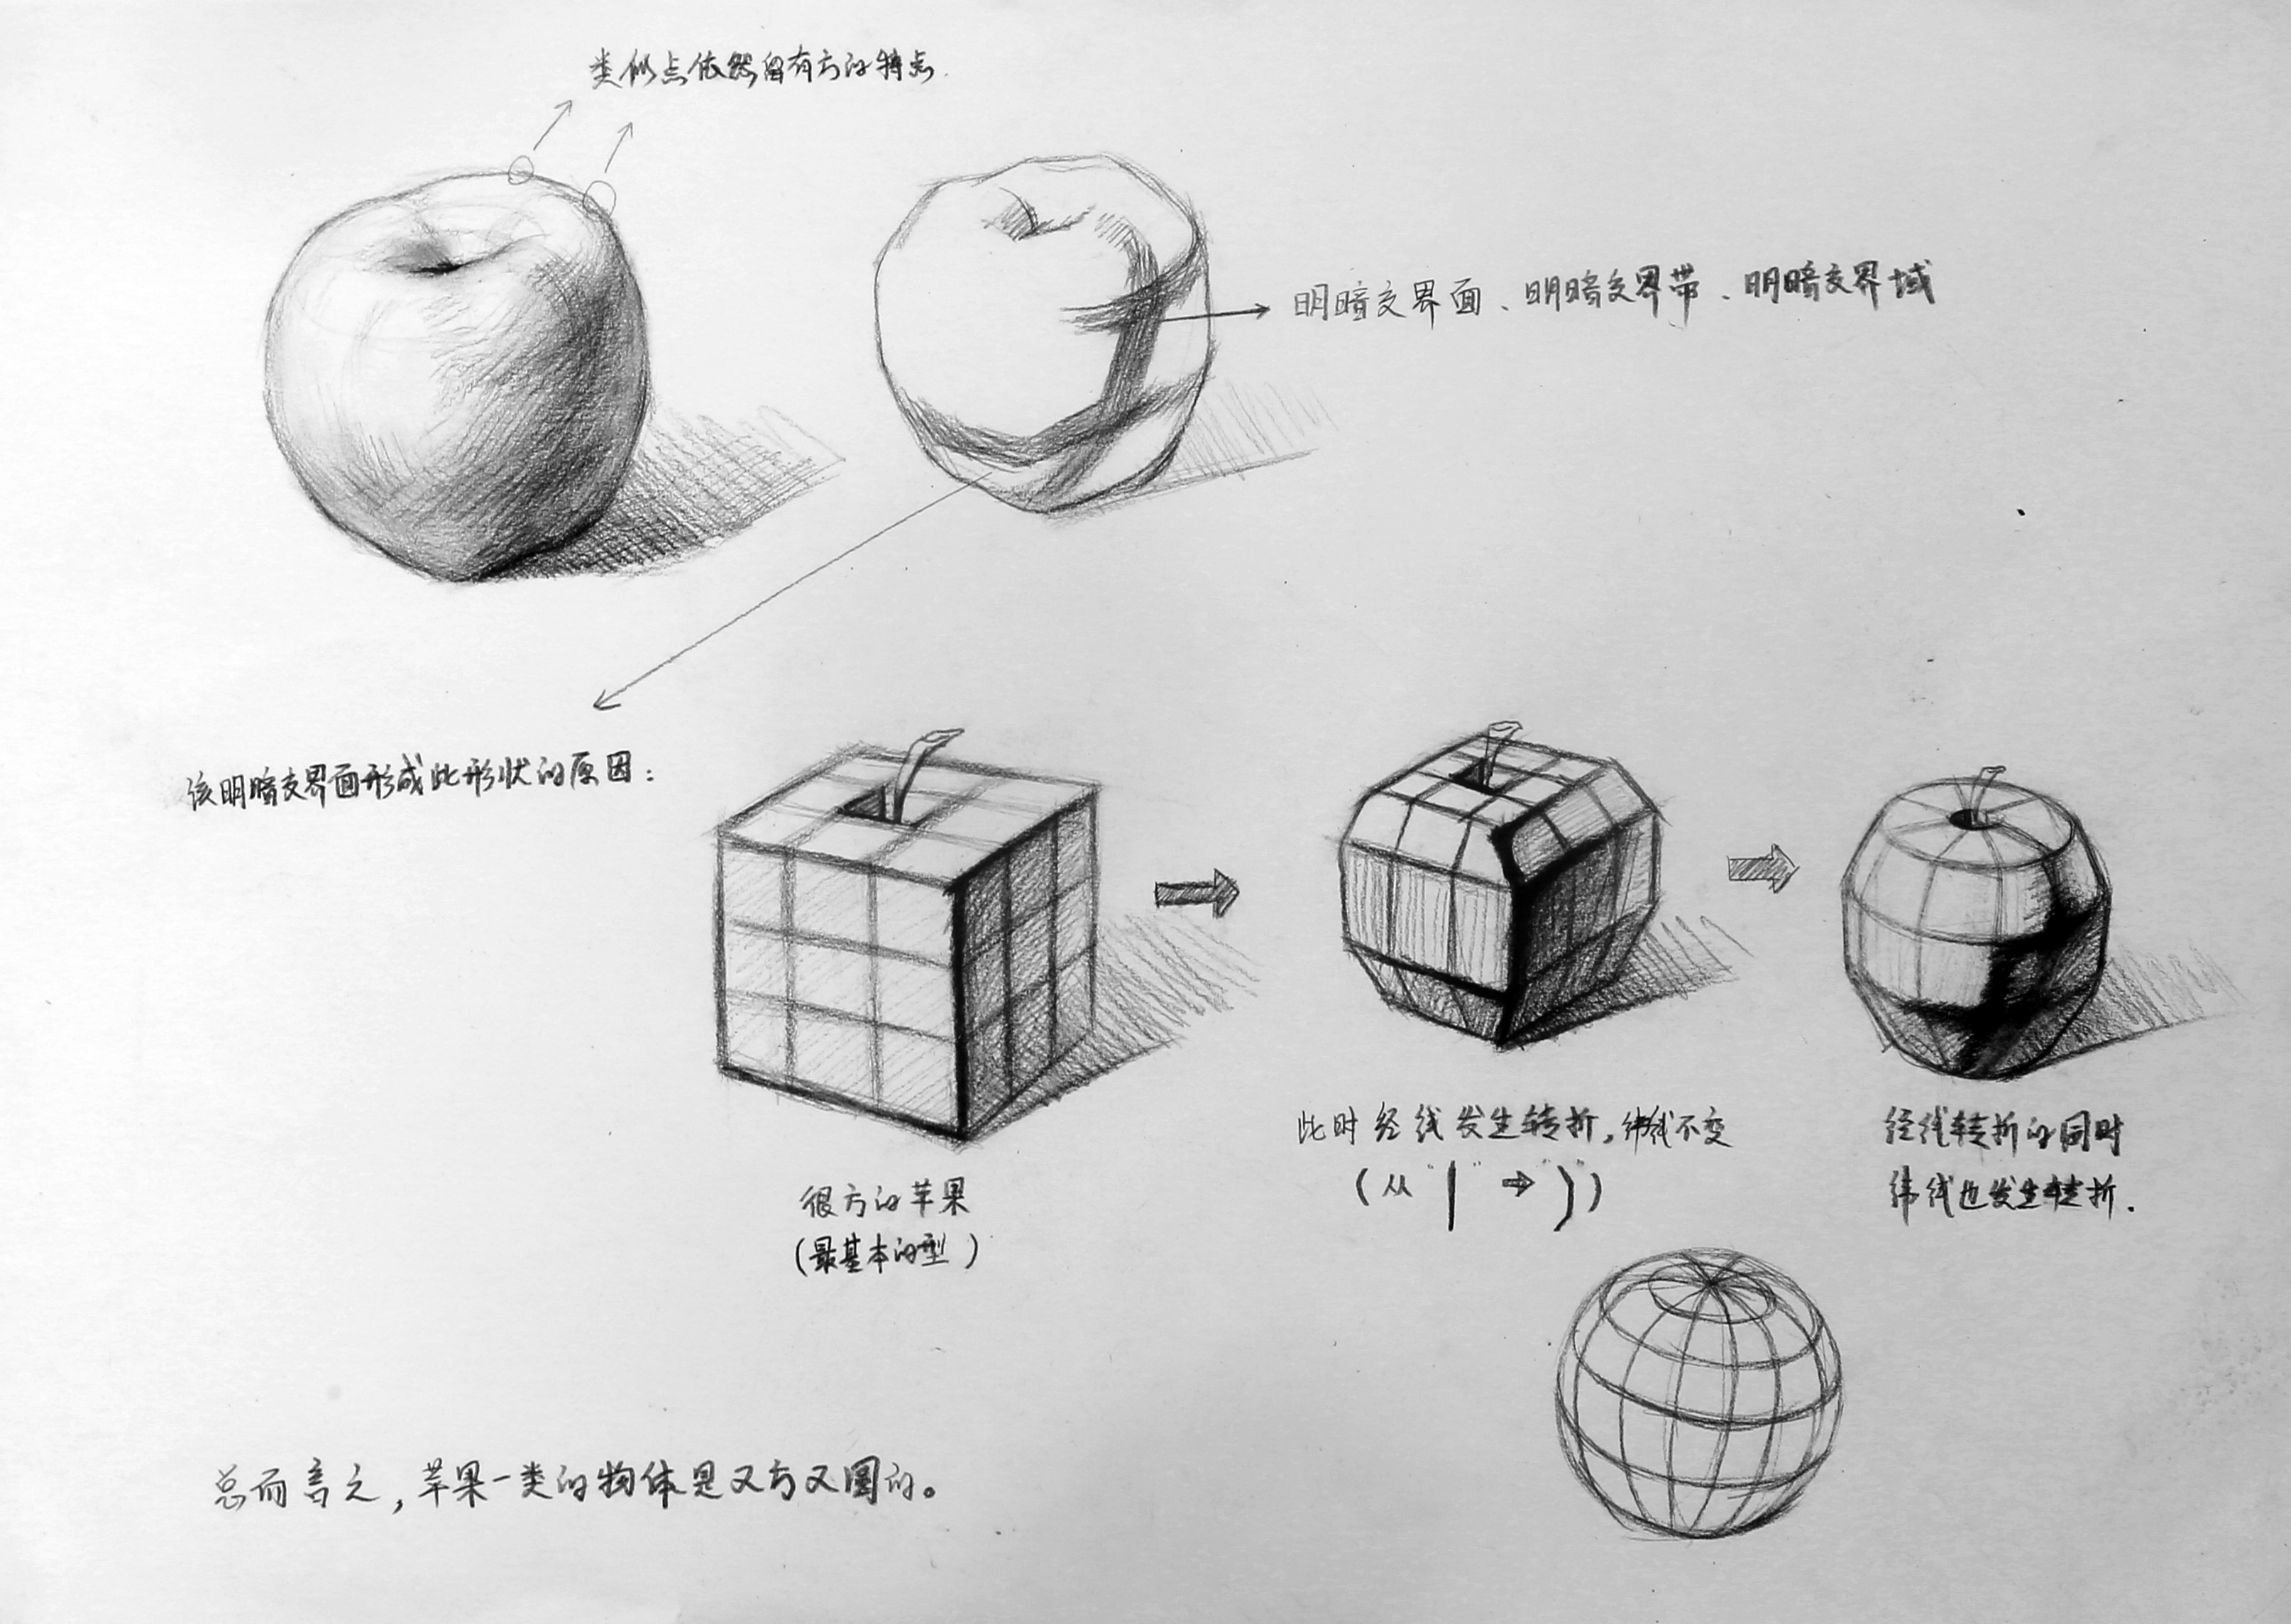 类似点依然留有方的特点.
明暗交界面、明暗交界带、明暗交界域
该明暗交界面形成此形状的原因:
很方的苹果
(最基本的型)
此时经线发生转折,纬线不变
(从"|"→")")
经线转折的同时
纬线也发生转折.
总而言之,苹果一类的物体是又方又圆的。